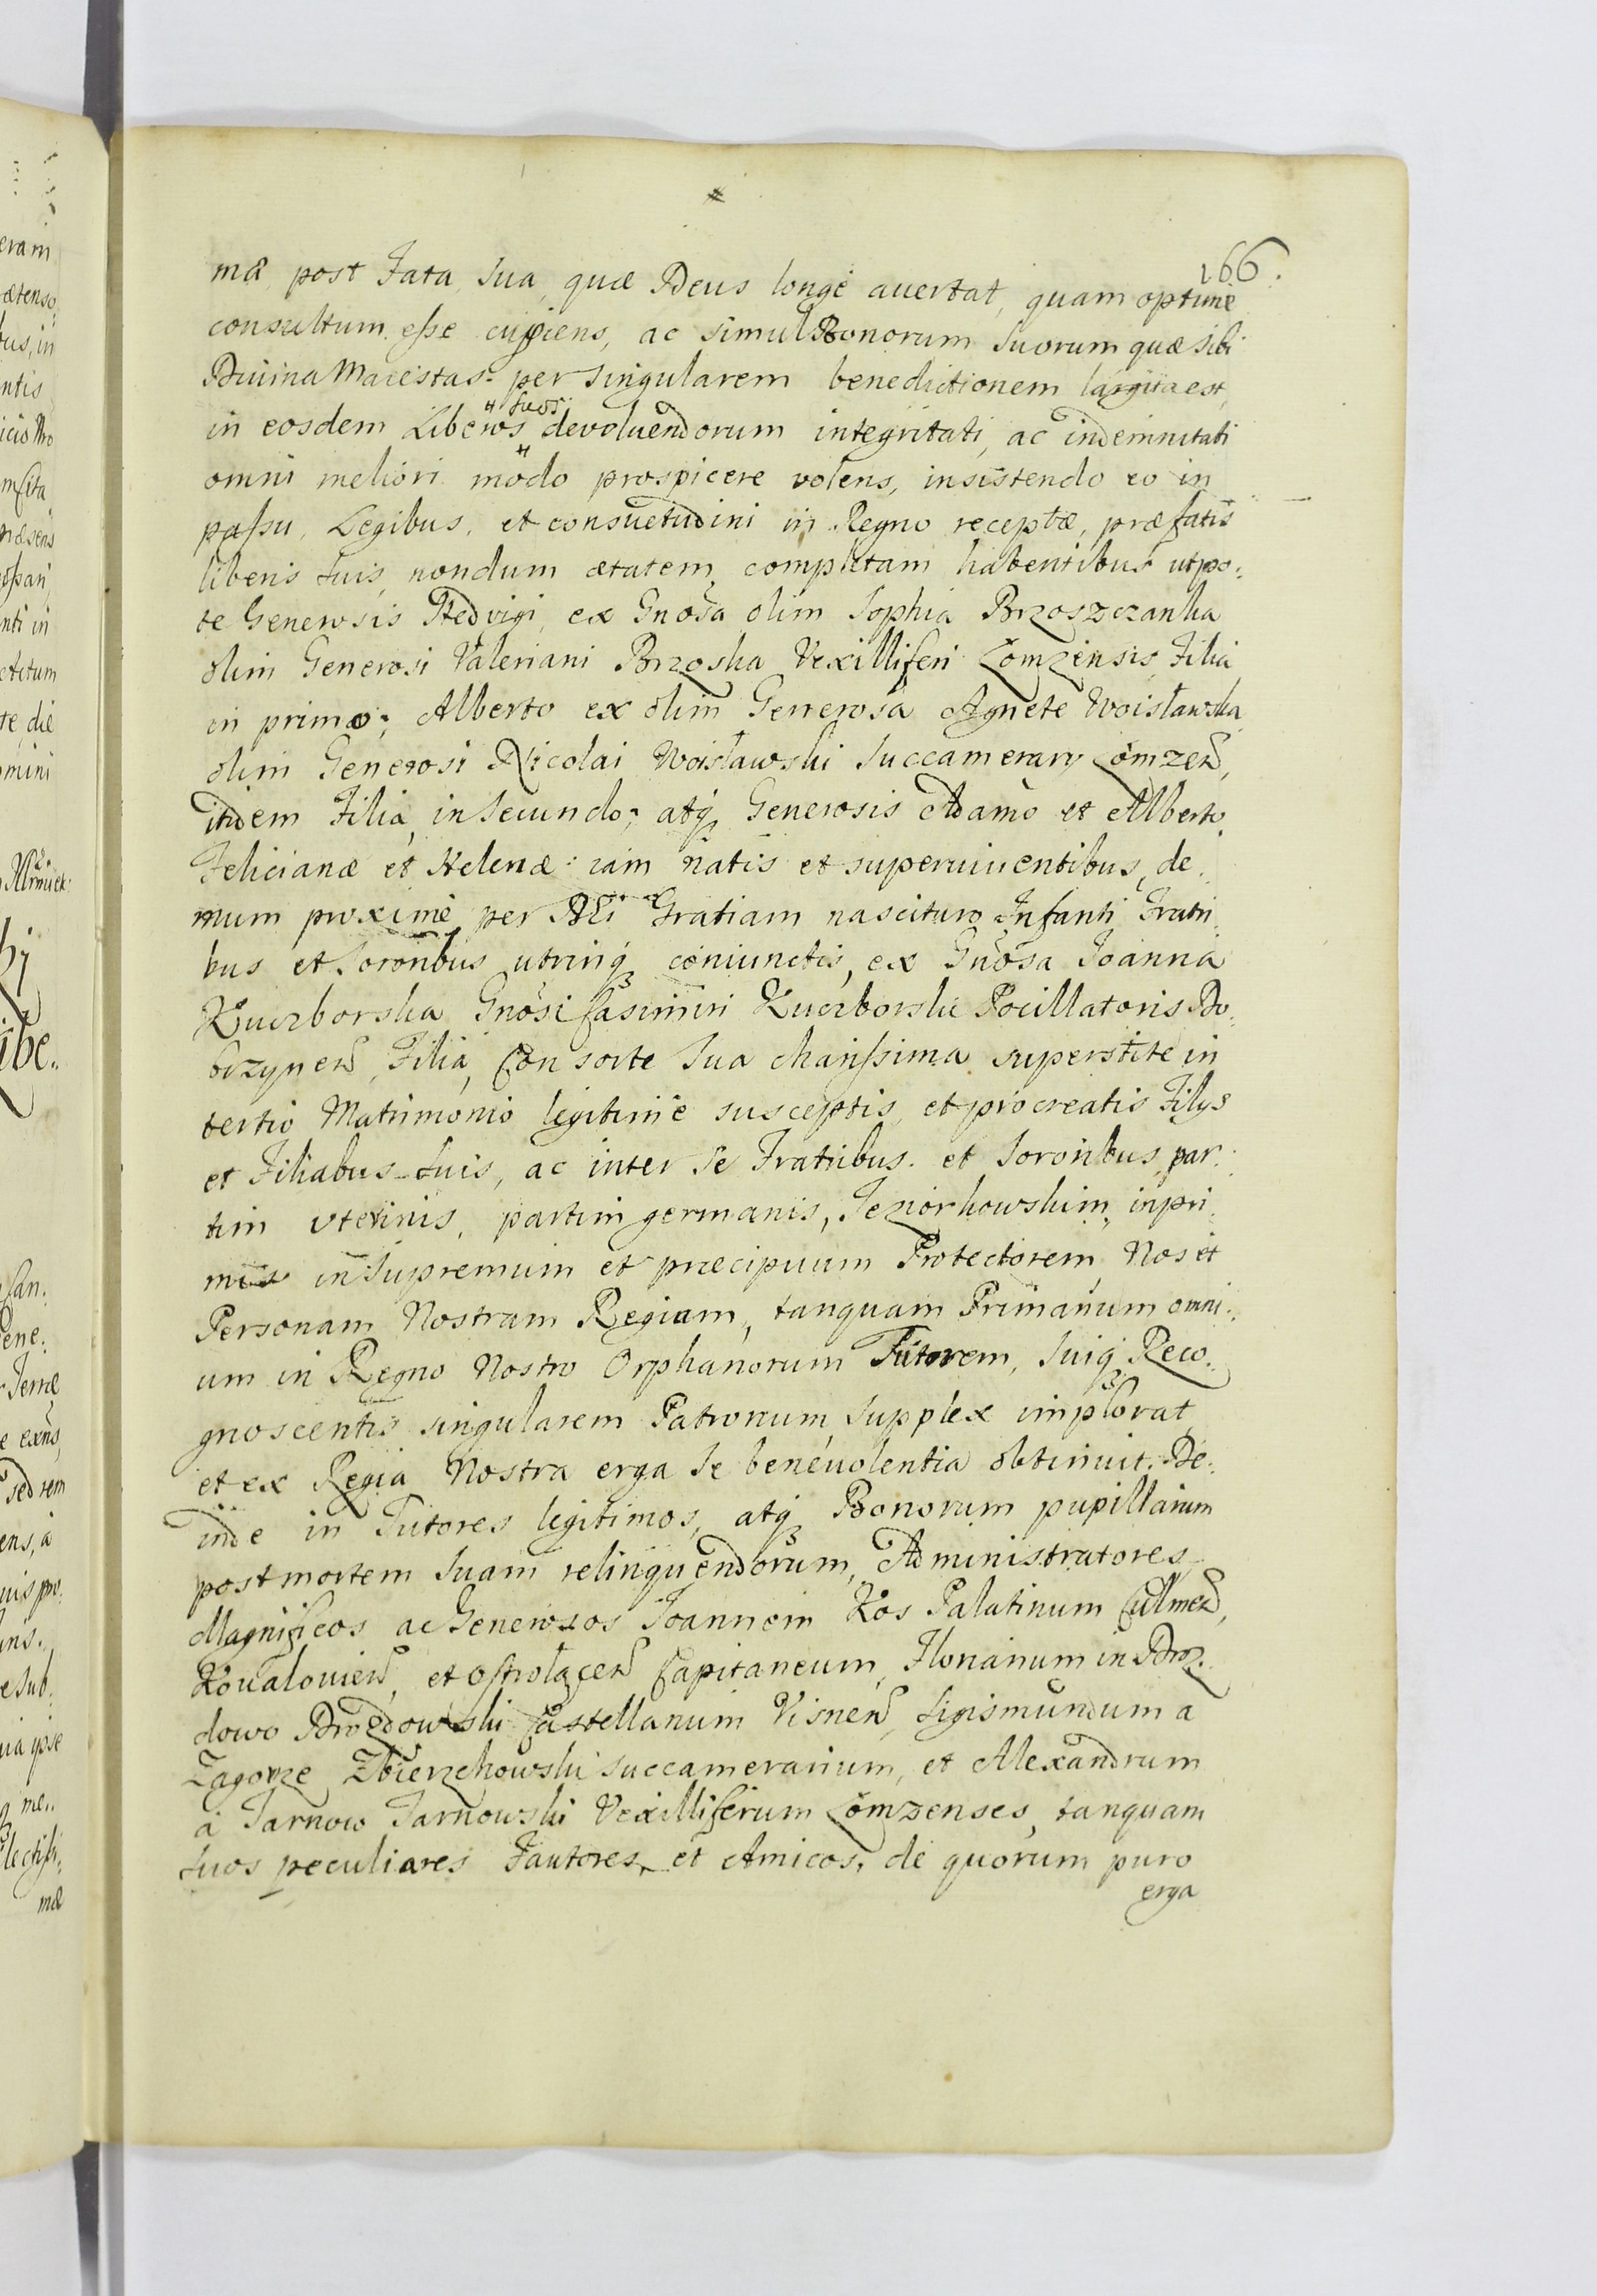 166.
mæ post Fata sua, quæ Deus longè auertat, quam optimè
consultum eße cupiens, ac simul Bonorum suorum quæ sibi
Diuina Maiestas per singularem benedictionem largita est,
in eosdem Liberos suos devoluendorum integritati, ac indemnitati
omni meliori modo prospicere volens, insistendo eo in
paßu, Legibus, et consuetudini in Regno receptæ, præfatis
liberis suis, nondum ætatem completam habentibus utpo:
te Generosis Hedvigi, ex Gnosa olim Sophia Brzoszczanka
olim Generosi Valeriani Brzoska Vexilliferi Łomzensis Filia
in primo; Alberto ex olim Generosa Agnete Woisławska
olim Generosi Nicolai Woisławski Succamerarÿ Łomzen,
itidem Filia, in secundo; atq Generosis Adamo et Alberto,
Felicianæ et Helenæ iam natis et superuiuentibus, de:
mum proximè per DEi Gratiam nascituro Infanti Fratri:
bus et Sororibus utrinq coniunctis, ex Gnosa Ioanna
Kuczborska Gnosi Casimiri Kuczborski Pocillatoris Do:
brzynen, Filia, Consorte sua charißima superstite in
tertio Matrimonio legitimè susceptis, et procreatis Filÿs
et Filiabus suis, ac inter se Fratribus et Sororibus par:
tim vterinis, partim germanis, Jeziorkowskim, inpri:
mis in Supremum et præcipuum Protectorem Nos et
Personam Nostram Regiam, tanquam Primarium omni:
um in Regno Nostro Orphanorum Tutorem, suiq Reco:
gnoscentis singularem Patronum supplex implorat,
et ex Regia Nostra erga se beneuolentia obtinuit. De:
inde in Tutores legitimos, atq Bonorum pupillarium
post mortem suam relinquendorum, Administratores
Magnificos ac Generosos Ioannem Kos Palatinum Culmen,
Kovalovien, et Ostrołącen Capitaneum, Florianum in Droz:
dowo Drozdowski Castellanum Visnen, Sigismundum a
Zagorze Zbierzchowski Succamerarium, et Alexandrum
à Tarnow Tarnowski Vexilliferum Łomzenses, tanquam
suos peculiares Fautores et Amicos, de quorum puro
erga